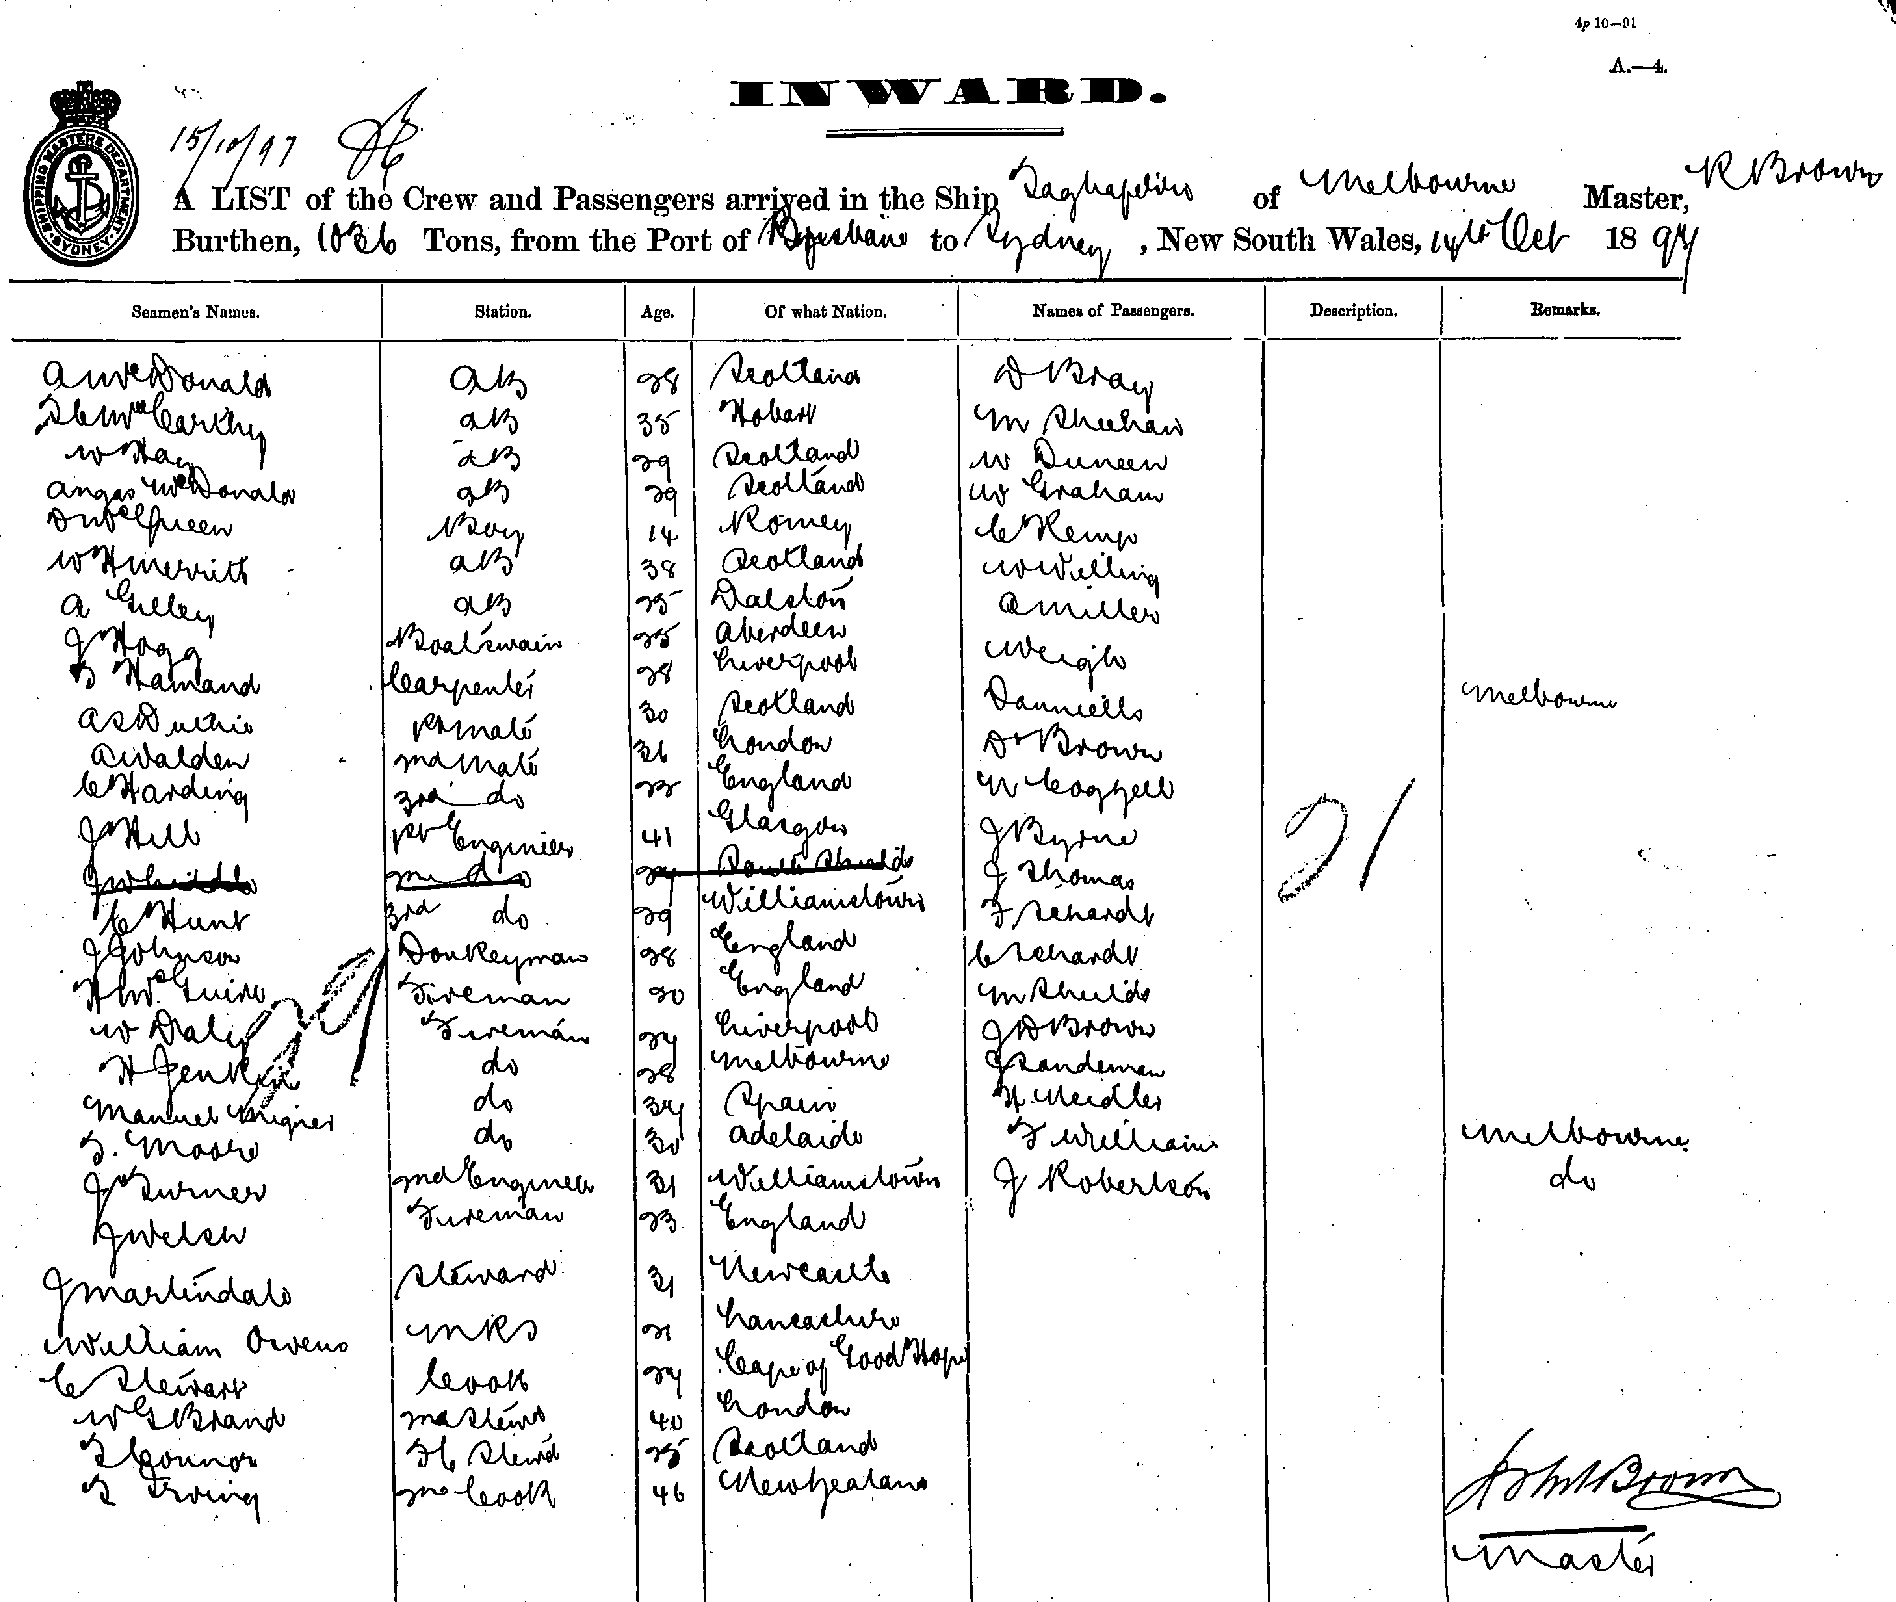 4p 10—91
A.—4.
INWARD.
SHIPPING MASTERS DEPARTMENT SYDNEY
15/10/97
A LIST of the Crew and Passengers arrived in the Ship of Melbourne Master, R Brown
Burthen, 1036 Tons, from the Port of Brisbane to Sydney, New South Wales, 14th Oct 1897
Seamen's Names. Station. Age. Of what Nation. Names of Passengers. Description. Remarks.
A McDonald AB 28 Scotland D Bray
McCarthy AB 35 Hobart M Sheehan
W Hay AB 29 Scotland W
Angas McDonald AB 29 Scotland W Graham
D McQueen Boy 14 Romey C Kemp
W H Merrith AB 38 Scotland W Willing
A Gilley AB 25 Dalston A Miller
J Hogg Boatswain 25 Aberdeen Weigh
Hamand Carpenter 28 Liverpool Danniells Melbourne
A S Duthie 1st Mate 30 Scotland
A Walden 2nd Mate 36 London Dr Brown
C Harding 3rd do 25 England W Coggell
J Hill 1st Engineer 41 Glasgow J Byrne 21
2nd do 24 South Shields J Thomas
C Hunt 3rd do 29 Williamstown F Schardt
J Johnson Donkeyman 28 England C Schardt
H McGuire Fireman 20 England M Shields
W Daly Fireman 24 Liverpool J D Brown
H Jenkin do 28 Melbourne J Sandeman
Manuel do 34 Spain H Meidler
T. Moore do 30 Adelaide F Williams Melbourne
J Turner 2nd Engineer 31 Williamstown J Robertson do
J Welsh Fireman 23 England
29
J Martindale Steward 31 Newcastle
William Owens 21 Lancashire
C Stewart Cook 24 Cape of Good Hope
W G Brand 2nd Stewd 40 London
T Connor F C Stewd 25 Scotland
T Irving 2nd Cook 46 New Zealand
Brown
Master